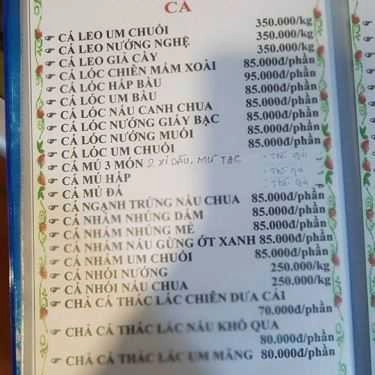 CÁ
CÁ LEO UM CHUỐI 350.000/kg
CÁ LEO NƯỚNG NGHỆ 350.000/kg
CÁ LEO GIẢ CẦY 350.000/kg
CÁ LÓC CHIÊN MẮM XOÀI 85.000đ/phần
CÁ LÓC HẤP BẦU 95.000đ/phần
CÁ LÓC UM BẦU 85.000đ/phần
CÁ LÓC NẤU CANH CHUA 85.000đ/phần
CÁ LÓC NƯỚNG GIẤY BẠC 85.000đ/phần
CÁ LÓC NƯỚNG MUỐI 85.000đ/phần
CÁ LÓC UM CHUỐI 85.000đ/phần
CÁ MÚ 3 MÓN XÍ DẦU, MÙ TẠC - Thờ giá
CÁ MÚ HẤP - Thờ giá
CÁ MÚ ĐÁ - Thờ giá
CÁ NGẠNH TRỨNG NẤU CHUA 85.000đ/phần
CÁ NHÁM NHÚNG DẤM 85.000đ/phần
CÁ NHÁM NHÚNG MẺ 85.000đ/phần
CÁ NHÁM NẤU GỪNG ỚT XANH 85.000đ/phần
CÁ NHÁM UM CHUỐI 85.000đ/phần
CÁ NHÓI NƯỚNG 250.000/kg
CÁ NHÓI NẤU CHUA 250.000/kg
CHẢ CÁ THÁC LÁC CHIÊN DƯA CẢI
70.000đ/phần
CHẢ CÁ THÁC LÁC NẤU KHỔ QUA
80.000đ/phần
CHẢ CÁ THÁC LÁC UM MĂNG 80.000đ/phần